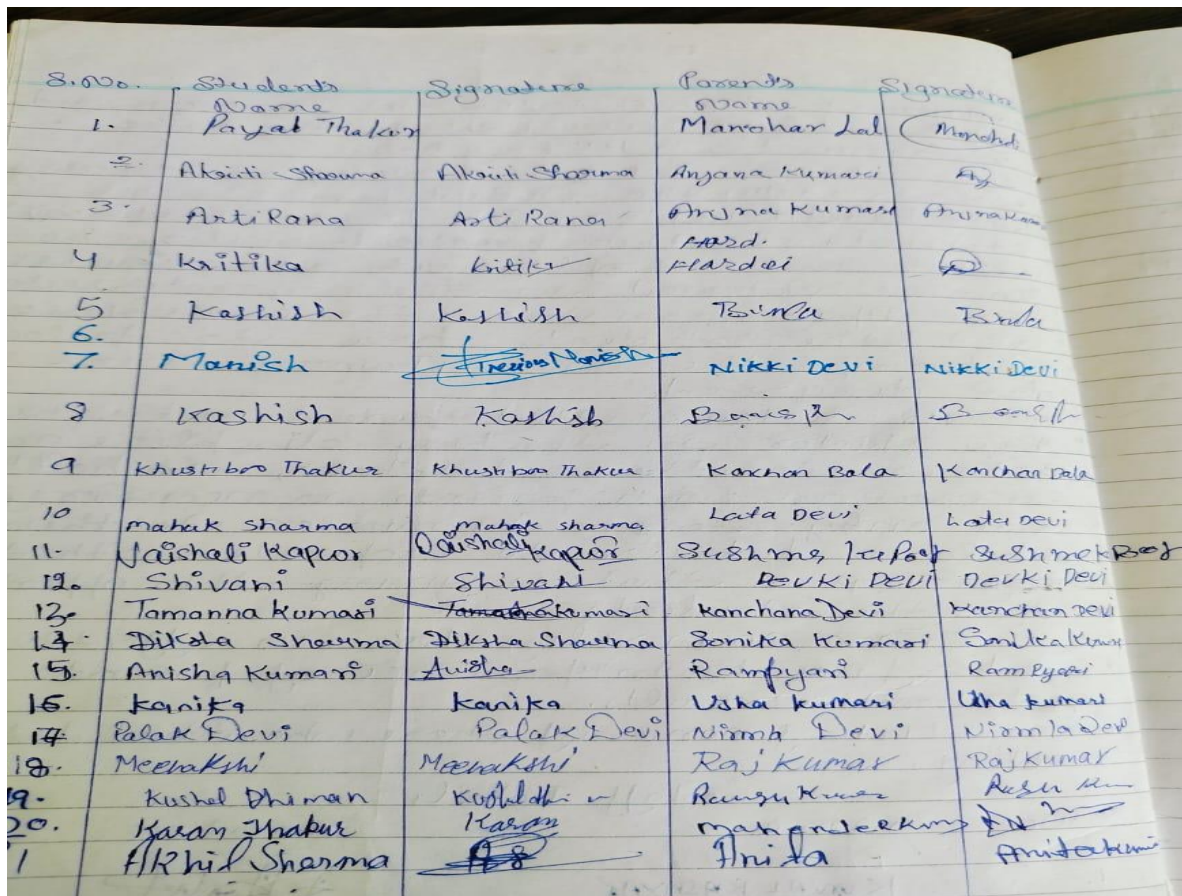 S.No. Students Name Signature Parents Name Signature
1. Payal Thakur Manohar Lal
2. Akriti Sharma Akriti Sharma Anjana Kumari
3. Arti Rana Arti Rana Anjna Kumari
Hard.
4 Kritika Kritika Hardei
5 Kashish Kashish Bimla Bimla
6.
7. Manish Manish Nikki Devi Nikki Devi
8 Kashish Kashish
9 Khushboo Thakur Khushboo Thakur Kanchan Bala Kanchan Bala
10 mahak sharma mahak sharma Lata Devi Lata Devi
11. Vaishali Kapoor Vaishali Kapoor Sushma
12. Shivani Shivani Devki Devi Devki Devi
13. Tamanna Kumari Tamanna Kumari Kanchana Devi Kanchan Devi
14. Diksha Sharma Diksha Sharma Sonika Kumari Sonika
15. Anisha Kumari Anisha Rampyari Rampyari
16. Kanika Kanika Usha Kumari Usha Kumari
17. Palak Devi Palak Devi Nirmla Devi Nirmla Devi
18. Meenakshi Meenakshi Raj Kumar Raj Kumar
19. Kushal Dhiman
20. Karan Thakur Karan
1 Akhil Sharma Anita